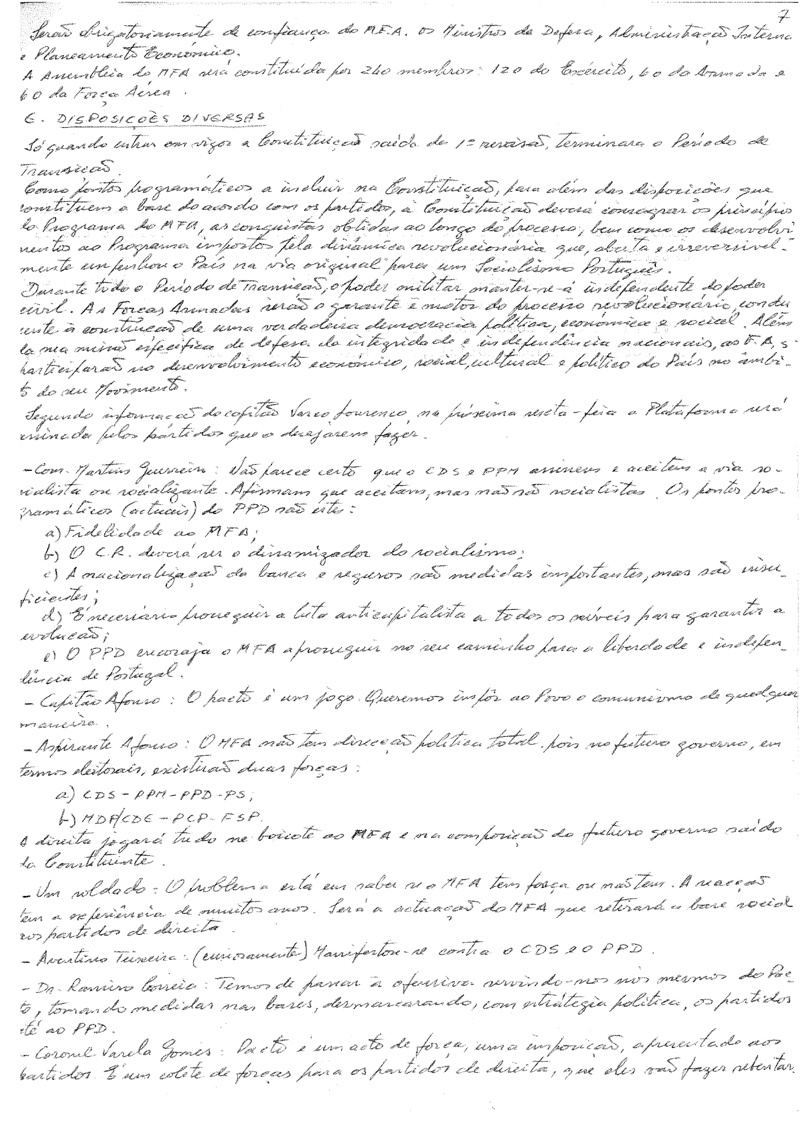 7
Serão obrigatoriamente de confiança do M.F.A. os Ministros da Defesa, Administração Interna
e Planeamento Económico.
A Assembleia do MFA será constituída por 240 membros: 120 do Exército, 60 da Armada e
60 da Força Aérea.
E. DISPOSIÇÕES DIVERSAS
Só quando entrar em vigor a Constituição saída da 1ª revisão, terminará o Período de
Transição
Como pontos programáticos a incluir na Constituição, para além das disposições que
constituem a base do acordo com os partidos, a Constituição deverá consagrar os princípio
do Programa do MFA, as conquistas obtidas ao longo do processo, bem como os desenvolvi
mentos ao Programa impostos pela dinâmica revolucionária que, aberta e irreversivel-
mente empenhou o País na via original para um Socialismo Português.
Durante todo o Período de Transição, o poder militar manter-se-á independente do poder
civil. As Forças Armadas serão o garante e motor do processo revolucionário, condu
cente à construção de uma verdadeira democracia política, económica e social. Além
da sua missão específica de defesa da integridade e independência nacionais, as F.A.s
participarão no desenvolvimento económico, social, cultural e político do País no âmbi-
to do seu Movimento.
Segundo informação do capitão Vasco Lourenço, na próxima sexta-feira a Plataforma será
assinada pelos partidos que o desejarem fazer.
- Com. Martins Guerreiro: Não parece certo que o CDS e PPM assinem e aceitem a via so-
cialista ou socializante. Afirmam que aceitam, mas não são socialistas. Os pontos pro-
gramáticos (actuais) do PPD são estes:
a) Fidelidade ao MFA;
b) O C.R. deverá ser o dinamizador do socialismo;
c) A nacionalização da banca e seguros são medidas importantes, mas são insu-
ficientes;
d) É necessário prosseguir a luta anticapitalista a todos os níveis para garantir a
evolução;
e) O PPD encoraja o MFA a prosseguir no seu caminho para a liberdade e indepen-
dência de Portugal.
- Capitão Afonso: O pacto é um jogo. Queremos impôr ao Povo o comunismo de qualquer
maneira.
- Aspirante Afonso: O MFA não tem direcção política total, pois no futuro governo, em
termos eleitorais, existirão duas forças:
a) CDS-PPM-PPD-PS;
b) MDP/CDE-PCP-FSP.
A direita jogará tudo no boicote ao MFA e na composição do futuro governo saído
da Constituinte.
- Um soldado: O problema está em saber se o MFA tem força ou não tem. A reacção
tem a experiência de muitos anos. Será a actuação do MFA que retirará a base social
aos partidos de direita.
- Avertino Teixeira: (curiosamente) Manifestou-se contra o CDS e o PPD.
- Dr. Ramiro Correia: Temos de passar à ofensiva servindo-nos nós mesmos do Pac-
to, tomando medidas nas bases, desmascarando, com estratégia política, os partidos
até ao PPD.
- Coronel Varela Gomes: Pacto é um acto de força, uma imposição, apresentado aos
partidos. É um colete de forças para os partidos de direita, que eles vão fazer rebentar.